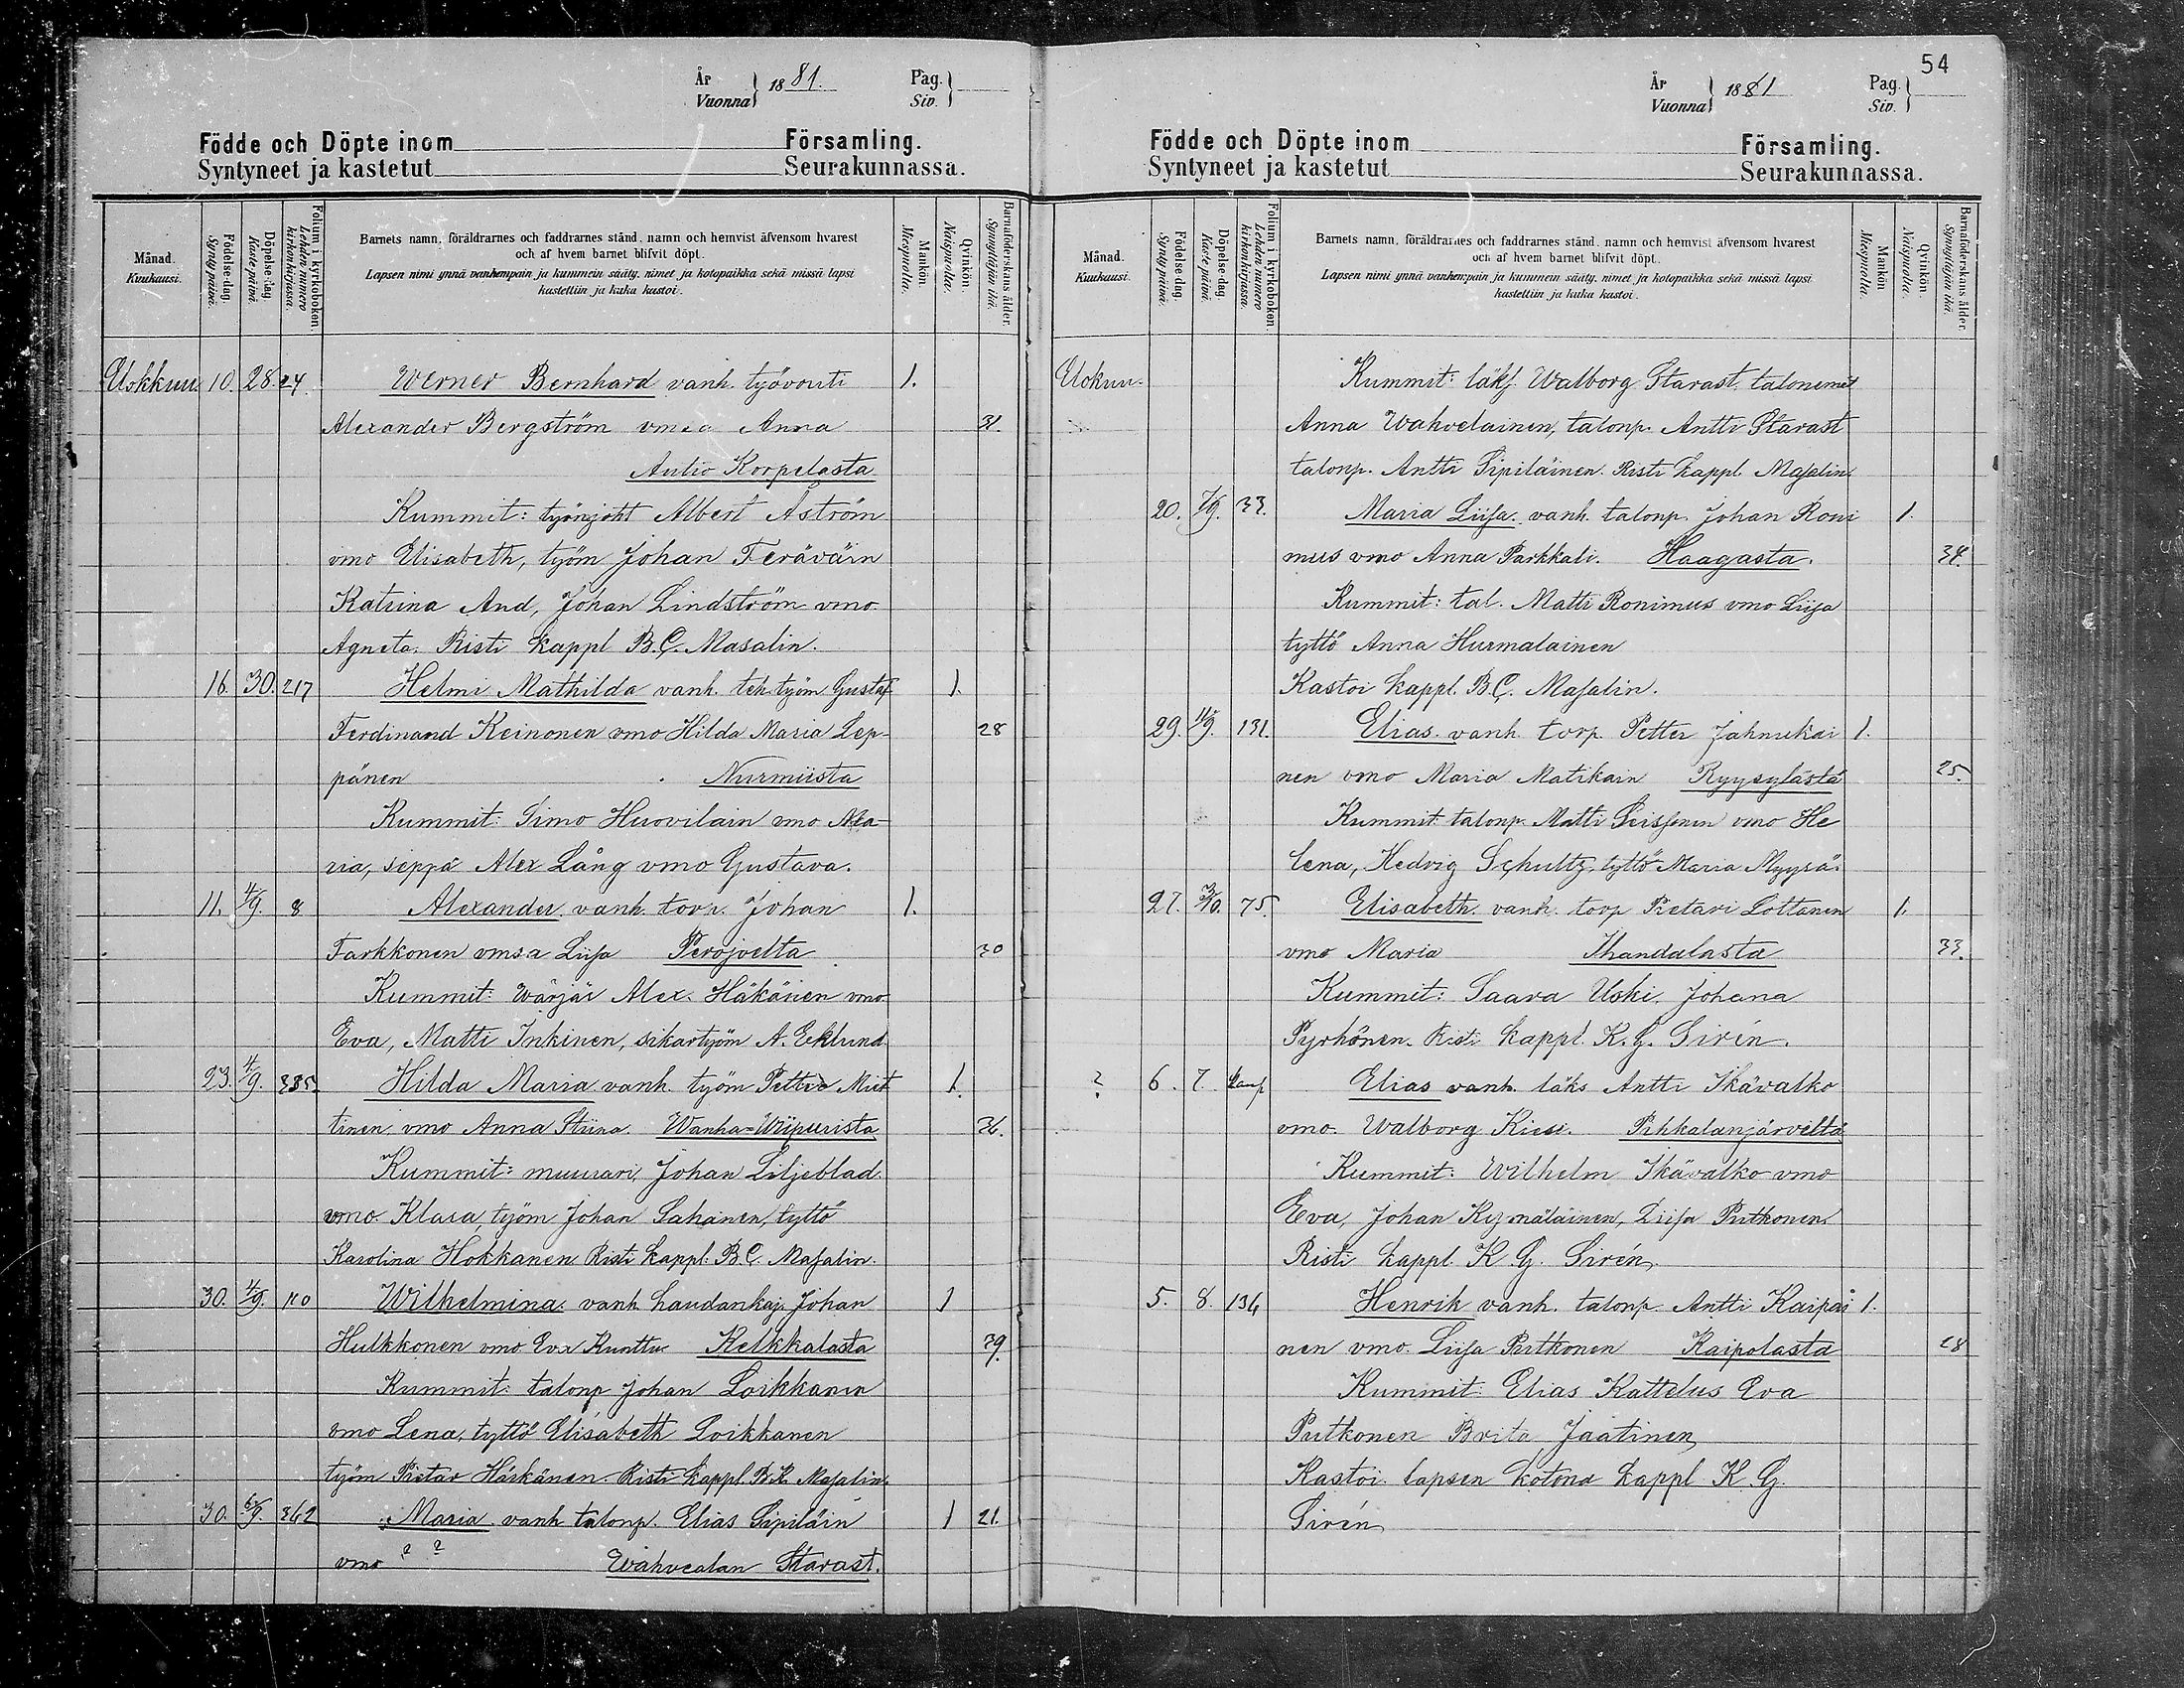 År
Vuonna } 1881.
Pag.
Siv. }
Födde och Döpte inom Församling.
Syntyneet ja kastetut Seurakunnassa.
Månad. Kuukausi.
Födelse-dag. Syntypäivä.
Döpelse-dag. Kastepäivä.
Folium i kyrkoboken. Lehden numero kirkonkirjassa.
Barnets namn, föräldrarnes och faddrarnes stånd, namn och hemvist äfvensom hvarest
och af hvem barnet blifvit döpt.
Lapsen nimi ynnä vanhempain ja kummein sääty, nimet ja kotopaikka sekä missä lapsi
kastettiin ja kuka kastoi.
Mankön. Miespuolia.
Qvinkön. Naispuolia.
Barnaföderskans ålder. Synnyttäjän ikä.
Elokkuu 10. 28. 24. Werner Bernhard vanh. työvouti 1.
Alexander Bergström vmsa Anna 31.
Aulio Korpelasta
Kummit: työnjoht Albert Åström
vmo Elisabeth, työm Johan Teräväin
Katrina And, Johan Lindström vmo
Agneta. Risti kappl B.C. Masalin.
16. 30. 217 Helmi Mathilda vanh. teh. työm Gustaf 1.
Ferdinand Keinonen vmo Hilda Maria Lep- 28
pänen Nurmiista
Kummit: Simo Huovilain vmo Ma-
ria, seppä Alex Lång vmo Gustava.
11. 4/9. 8 Alexander vanh. torp. Johan 1.
Tarkkonen vmsa Liisa Perojoelta 30
Kummit: Wärjär Alex. Häkänen vmo
Eva, Matti Inkinen, sikartyöm A. Eklund.
23. 4/9. 385. Hilda Maria vanh. työm Petter Miet 1.
tinen, vmo Anna Stiina. Wanha=Wiipurista 36.
Kummit: muurari, Johan Liljeblad.
vmo. Klara, työm Johan Sahanen, tyttö
Karolina Hokkanen. Risti kappl. B.C. Masalin.
30. 4/9. 110 Wilhelmina. vanh. haudankaj. Johan 1
Hulkkonen vmo Eva Kunttu Kelkkalasta 39.
Kummit: talonp Johan Loikkanen
vmo Lena, tyttö Elisabeth Loikkanen
työm Pietar Härkänen Risti kappl. B.K. Masalin.
30. 6/9. 362 Maria vanh talonp. Elias Sipiläin 1 21.
vmo ? ? Wahvealan Starast.
54
År
Vuonna } 1881
Pag.
Siv. }
Födde och Döpte inom Församling.
Syntyneet ja kastetut Seurakunnassa.
Månad. Kuukausi.
Födelse-dag. Syntypäivä.
Döpelse-dag. Kastepäivä.
Folium i kyrkoboken. Lehden numero kirkonkirjassa.
Barnets namn, föräldrarnes och faddrarnes stånd, namn och hemvist äfvensom hvarest
och af hvem barnet blifvit döpt.
Lapsen nimi ynnä vanhempain ja kummein sääty, nimet ja kotopaikka sekä missä lapsi
kastettiin ja kuka kastoi.
Mankön Miespuolia.
Qvinkön. Naispuolia.
Barnaföderskans ålder. Synnyttäjän ikä.
Elokuu. Kummit: läksi Walborg Starast, talonemät
Anna Wahvelainen, talonp. Antti Starast
talonp. Antti Sipiläinen. Risti kappl. Masalin.
20. 7/9. 33. Maria Liisa. vanh. talonp. Johan Roni 1.
mus vmo Anna Parkkali. Haagasta. 34.
Kummit: tal. Matti Ronimus vmo Liisa
tyttö Anna Hurmalainen
Kastoi kappl. B.C. Masalin.
29. 11/9. 131. Elias. vanh. torp. Petter Jahnukai 1.
nen vmo Maria Matikain Ryysylästä 25.
Kummit: talonp. Matti Seissonen vmo He
lena, Hedvig Schultz, tyttö Maria Myyrä.
27. 3/10. 75. Elisabeth. vanh. torp Pietari Lottanen 1.
vmo Maria Ihandalasta 33.
Kummit: Saara Uski, Johana
Pyrhönen. Risti kappl. K.G. Sirén.
? 6. 7. Elias vanh. läks Antti Ikävalko
vmo. Walborg Kiesi. Pihkalanjärveltä
Kummit: Wilhelm Ikävalko vmo
Eva, Johan Kymäläinen, Liisa Putkonen.
Risti kappl. K.G. Sirén.
5. 8. 134 Henrik vanh. talonp. Antti Kaipai 1.
nen vmo. Liisa Putkonen Kaipolasta 28
Kummit: Elias Kattelus Eva
Putkonen Brita Jaatinen
Kastoi. lapsen kotona kappl K.G.
Sirén